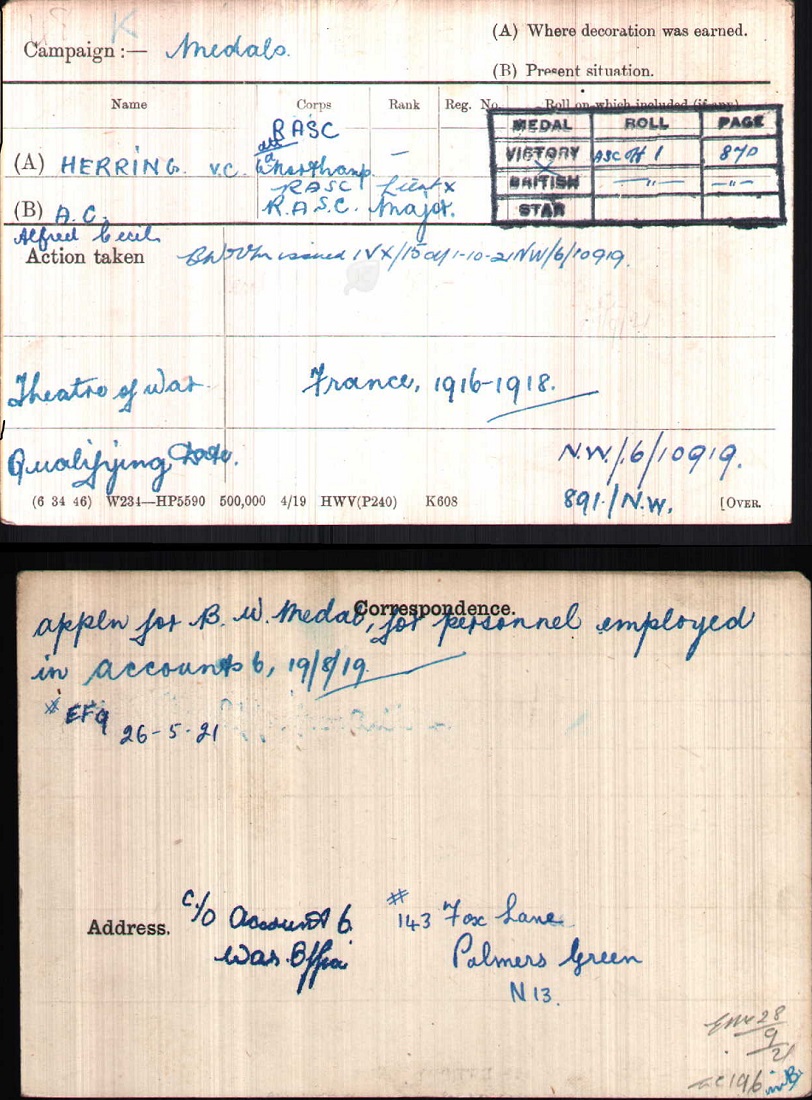 K
Campaign :— Medals.
(A) Where decoration was earned.
(B) Present situation.
Name Corps Rank Reg. No. Roll on which included (if any)
MEDAL ROLL PAGE
RASC
(A) HERRING. V.C. Northamp. —
VICTORY ASC OH 1 87D
RASC Lieut x
BRITISH —"— —"—
(B) A.C. R.A.S.C. Major.
STAR
Alfred Cecil
Action taken issued IVX/15 d/1-10-21 NW/6/10919.
Theatre of War. France, 1916-1918.
Qualifying Date.
N.W./6/10919.
(6 34 46) W234—HP5590 500,000 4/19 HWV(P240) K608 891/N.W. [OVER.
Correspondence.
appln for B. W. Medal, for personnel employed
in accounts 6, 19/8/19.
EF9
26-5-21
Address. C/O Accounts 6. # 143 Fox Lane
War Office Palmers Green
N 13.
28
9
21